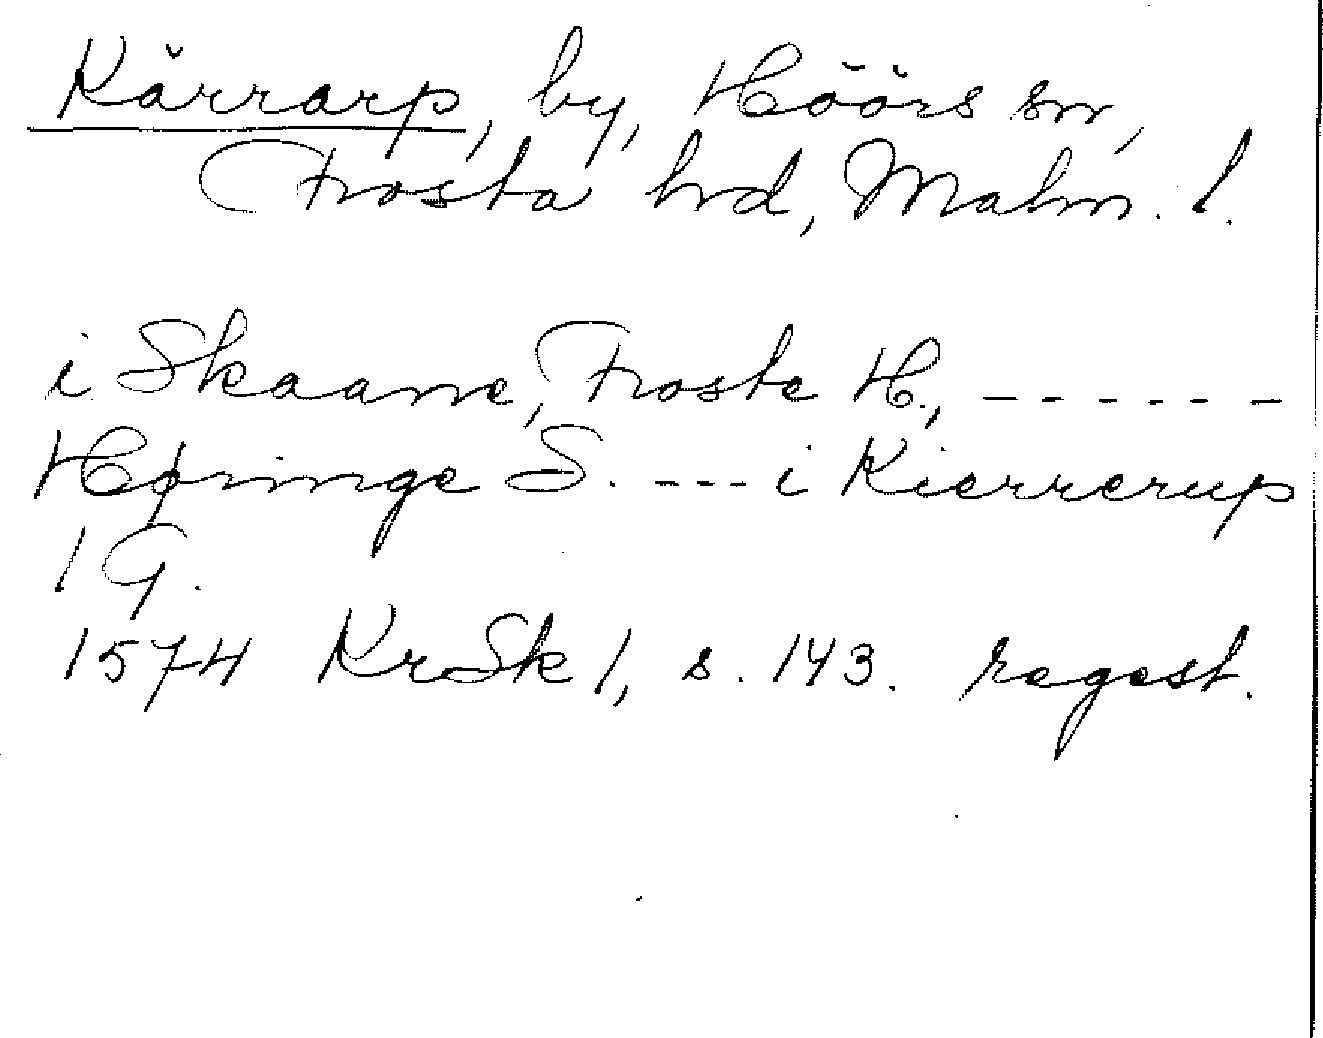 Kärrarp, by, Höörs sn,
Frosta hrd, Malm. l.
i Skaane, Froste H., ------
Høringe S. ---- i Kierrerup
1 G.
1574 KrSk 1, s. 143. regest.